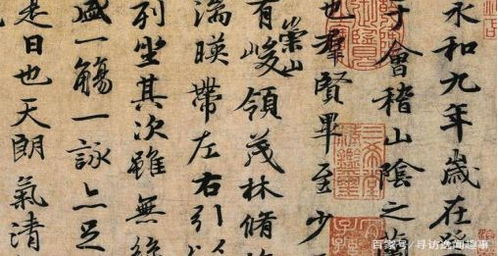 永和九年歲在
于會稽山陰之蘭
也羣賢畢至少
有崇山峻領茂林脩
湍暎帶左右引以
列坐其次雖無絲
盛一觴一詠亦足
是日也天朗氣清
百家号/寻访逸闻趣事